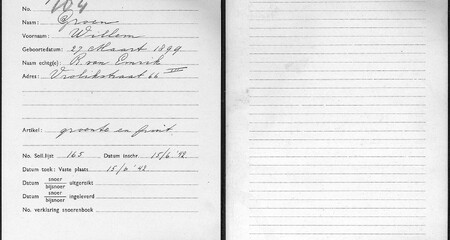 No. 164
Naam: Groen
Voornaam: Willem
Geboortedatum: 27 Maart 1899
Naam echtg(e): R. van Emrik
Adres: Vrolikstraat 66 III
Artikel: groente en fruit
No. Soll.lijst 165 Datum inschr. 15/6 '42
Datum toek: Vaste plaats 15/6 '42
Datum snoer/bijsnoer uitgereikt
Datum snoer/bijsnoer ingeleverd
No. verklaring snoerenboek: